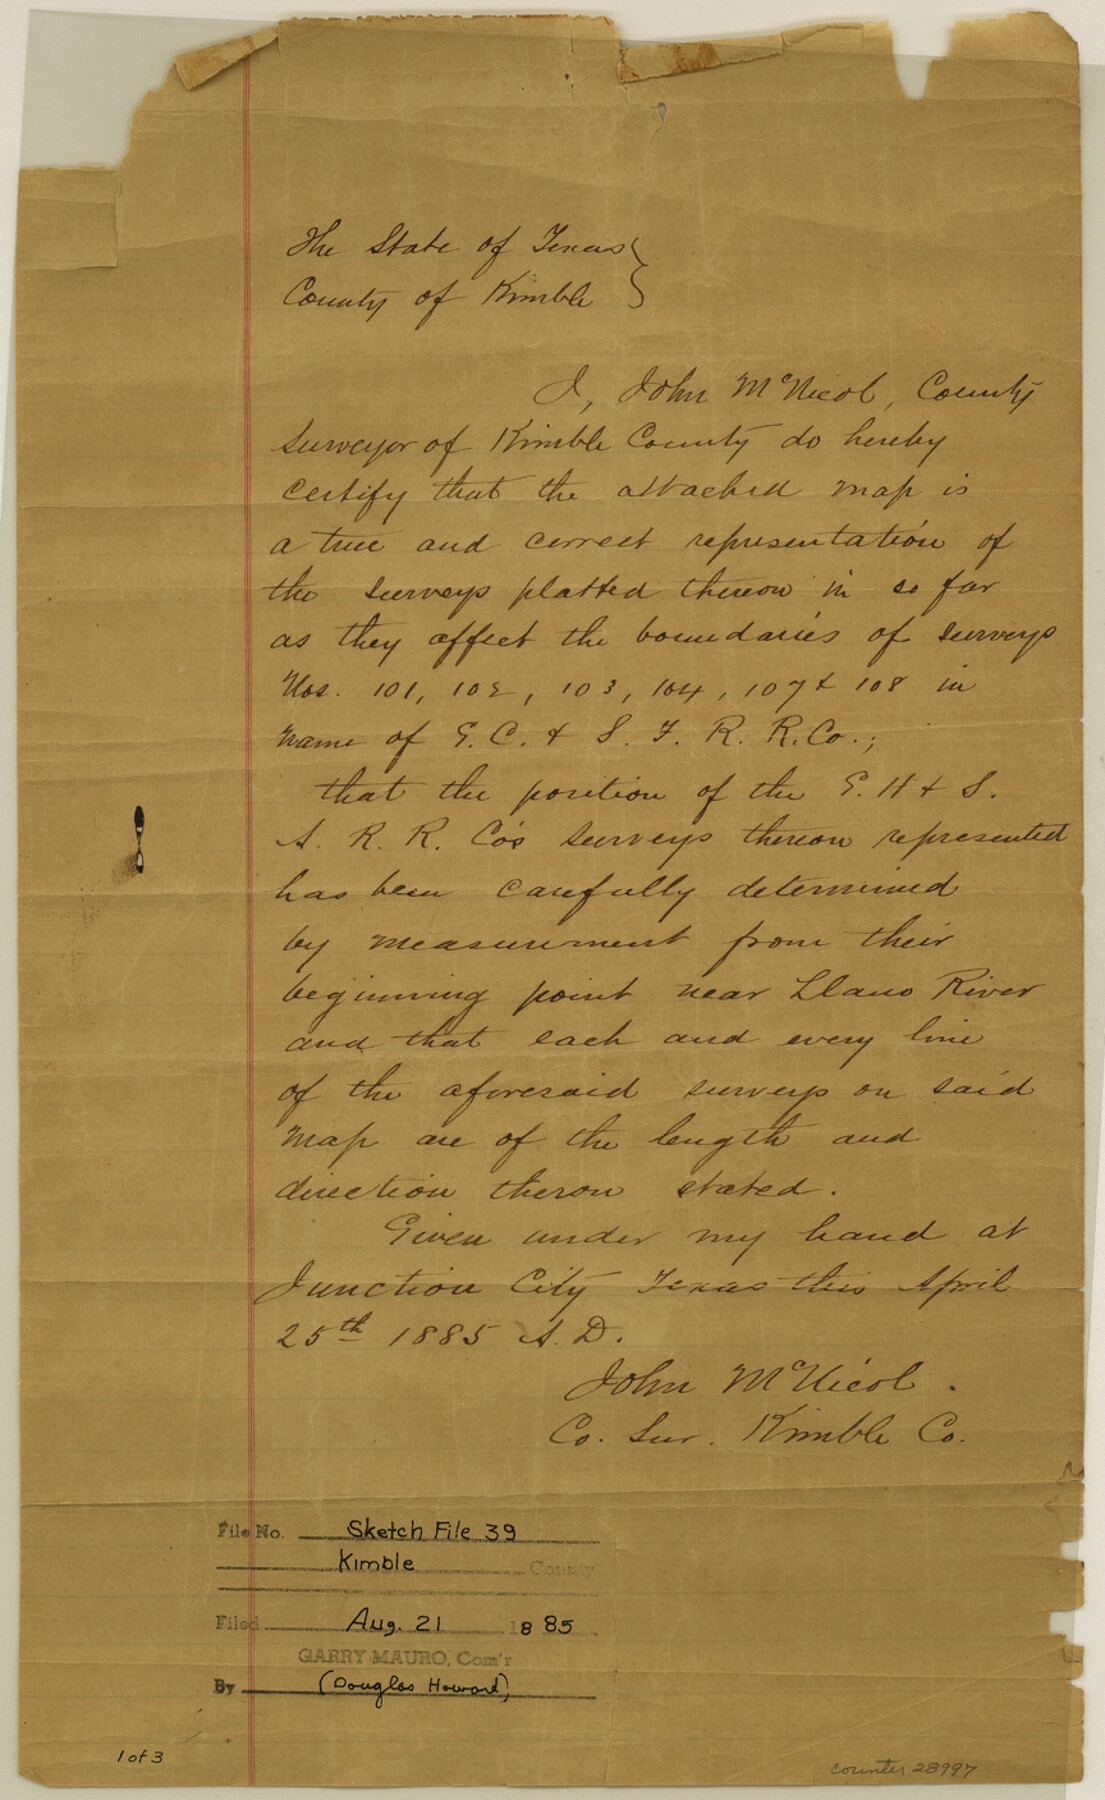 The State of Texas }
County of Kimble }
I, John McNicol, County
Surveyor of Kimble County do hereby
certify that the attached map is
a true and correct representation of
the surveys platted thereon in so far
as they affect the boundaries of surveys
Nos. 101, 102, 103, 104, 107 & 108 in
name of G. C. & S. F. R. R. Co.;
that the position of the G. H & S.
A. R. R. Co's surveys thereon represented
has been carefully determined
by measurement from their
beginning point near Llano River
and that each and every line
of the aforesaid surveys on said
map are of the length and
direction theron stated.
Given under my hand at
Junction City Texas this April
25th 1885 A. D.
John McNicol.
Co. Sur. Kimble Co.
File No. Sketch File 39
Kimble County
Filed Aug. 21 1885
GARRY MAURO, Com'r
By (Douglas Howard)
1 of 3
counter 28997